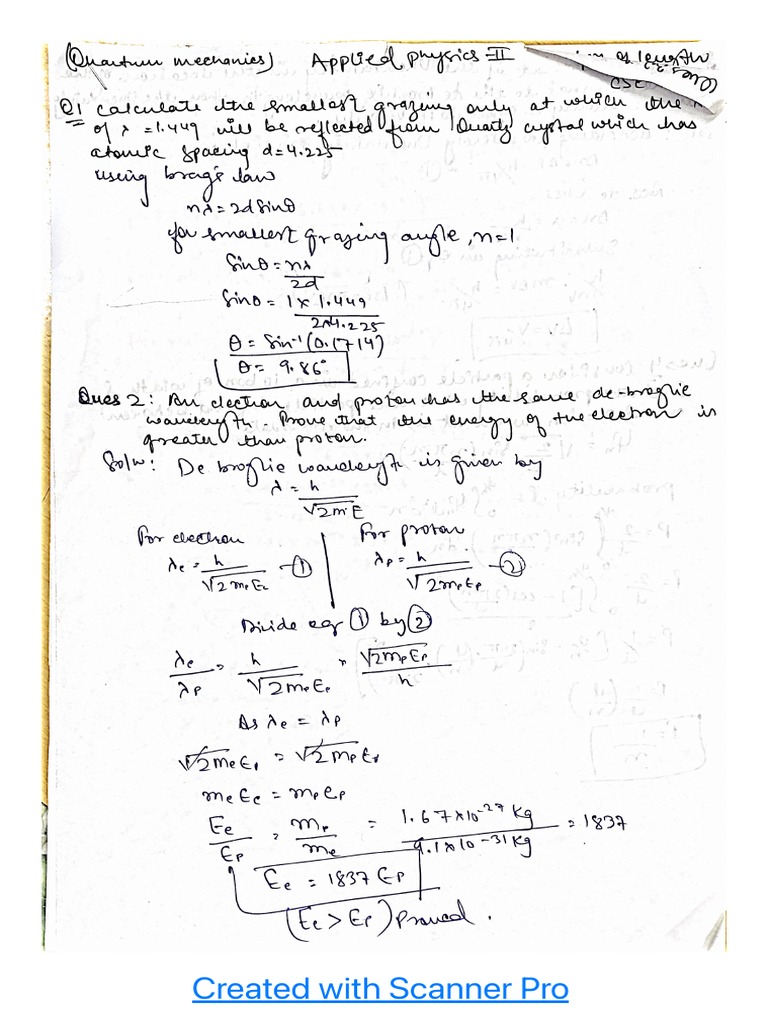 (Quantum mechanics) Applied Physics-II of length
CSE
Q1 Calculate the smallest grazing only at which the
of λ = 1.449 will be reflected from Quartz crystal which has
atomic spacing d=4.225
using brag's law
nλ = 2dSinθ
for smallest grazing angle, n=1
Sinθ = nλ/2d
Sinθ = 1 x 1.449/2x4.225
θ = Sin⁻¹(0.1714)
θ = 9.86°
Ques 2: An electron and proton has the same de-broglie
wavelength. Prove that the energy of the electron is
greater than proton.
Soln: De broglie wavelength is given by
λ = h/√2mE
For electron For proton
λe = h/√2meEe -① λp = h/√2mpEp -②
Divide eq ① by ②
λe/λp = h/√2meEe × √2mpEp/h
As λe = λp
√2meEe = √2mpEp
meEe = mpEp
Ee/Ep = mp/me = 1.67x10⁻²⁷ Kg/9.1x10⁻³¹ Kg = 1837
Ee = 1837 Ep
(Ee > Ep) Proved.
Created with Scanner Pro